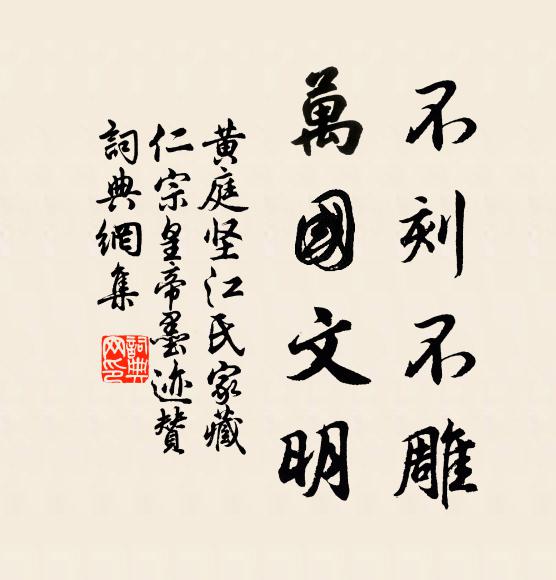 不刻不雕
萬國文明
黃庭坚江氏家藏
仁宗皇帝墨迹贊
詞典網集
詞典网印